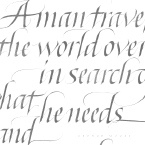 A man trave
the world over
in search o
hat he needs
and